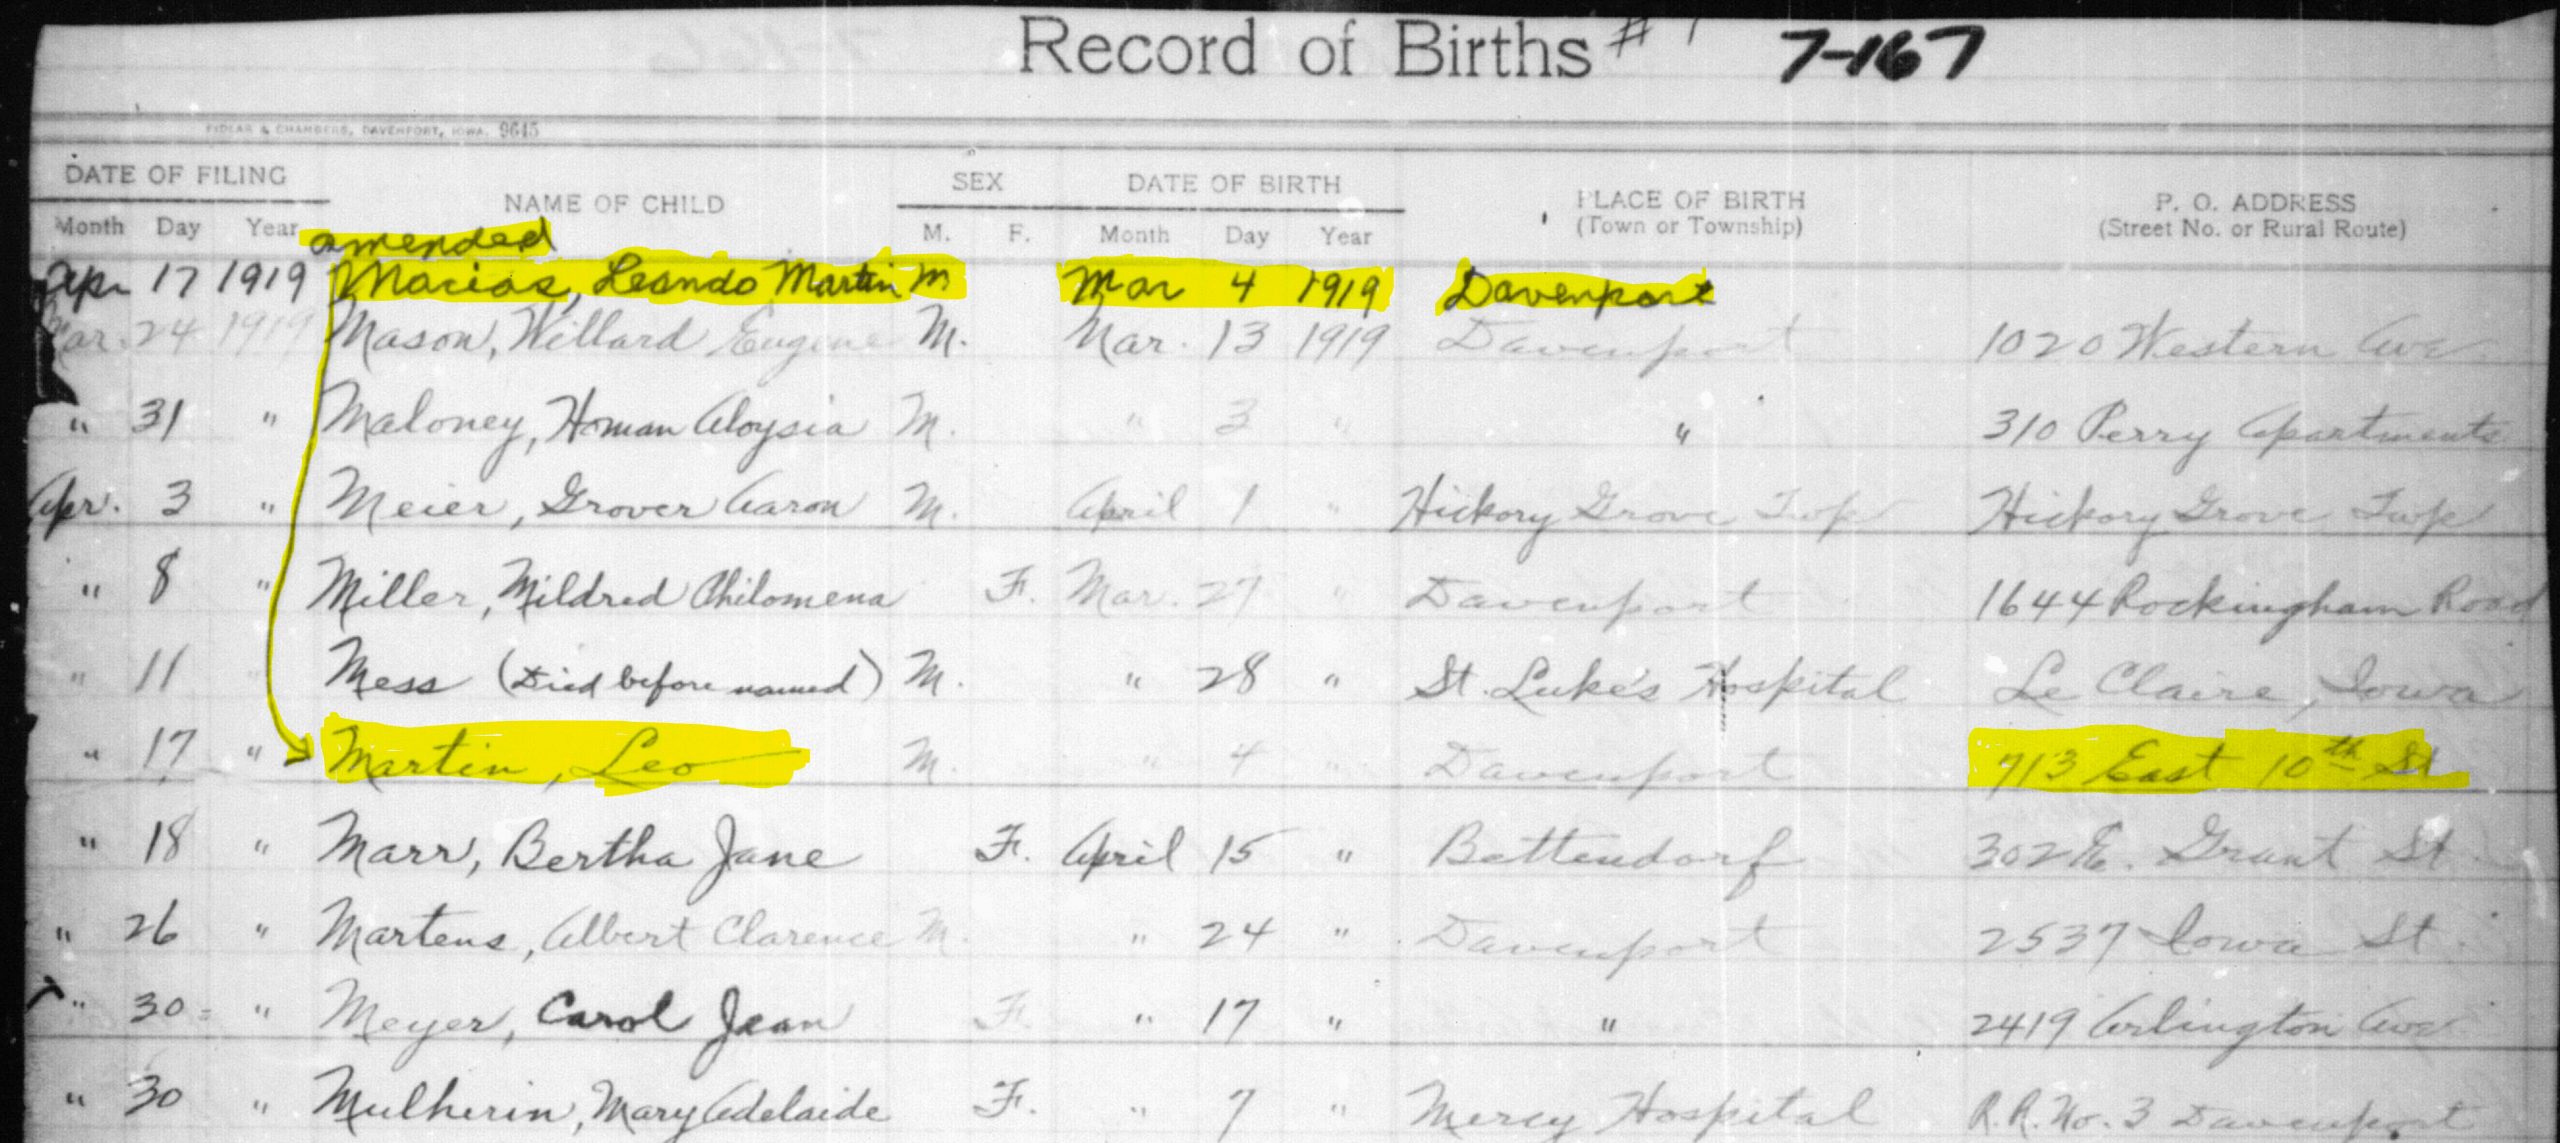 Record of Births #1 7-167
FIDLAR & CHAMBERS, DAVENPORT, IOWA. 9645
DATE OF FILING NAME OF CHILD SEX DATE OF BIRTH PLACE OF BIRTH P. O. ADDRESS
Month Day Year M. F. Month Day Year (Town or Township) (Street No. or Rural Route)
amended
Apr 17 1919 Macias, Leando Martin M Mar 4 1919 Davenport
Mar. 24 1919 Mason, Willard Eugene M. Mar. 13 1919 Davenport 1020 Western Ave.
" 31 " Maloney, Homan Aloysia M. " 3 " " 310 Perry Apartments
Apr. 3 " Meier, Grover Aaron M. April 1 " Hickory Grove Twp Hickory Grove Twp
" 8 " Miller, Mildred Philomena F. Mar. 27 " Davenport 1644 Rockingham Road
" 11 " Mess (Died before named) M. " 28 " St. Luke's Hospital Le Claire, Iowa
" 17 " Martin, Leo M. " 4 " Davenport 713 East 10th St
" 18 " Marr, Bertha Jane F. April 15 " Bettendorf 302 E. Grant St.
" 26 " Martens, Albert Clarence M. " 24 " Davenport 2537 Iowa St.
" 30 " Meyer, Carol Jean F. " 17 " " 2419 Arlington Ave
" 30 " Mulherin, Mary Adelaide F. " 7 " Mercy Hospital R.R. No. 3 Davenport